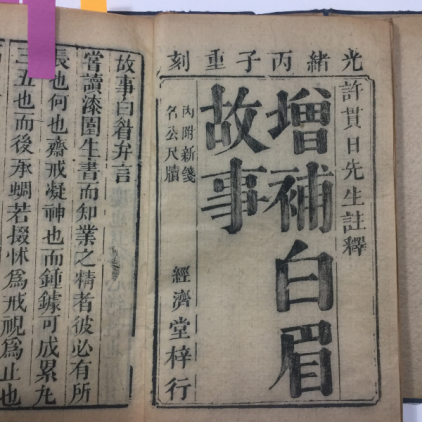 光緒丙子重刻
許貫日先生註釋
增補白眉
故事
內附新箋
名公尺牘
經濟堂梓行
故事白眉弁言
嘗讀漆園生書而知業之精者彼必有所
長也何也齋戒凝神也而鍾鐻可成累丸
三五也而後承蜩若掇怵爲戒視爲止也